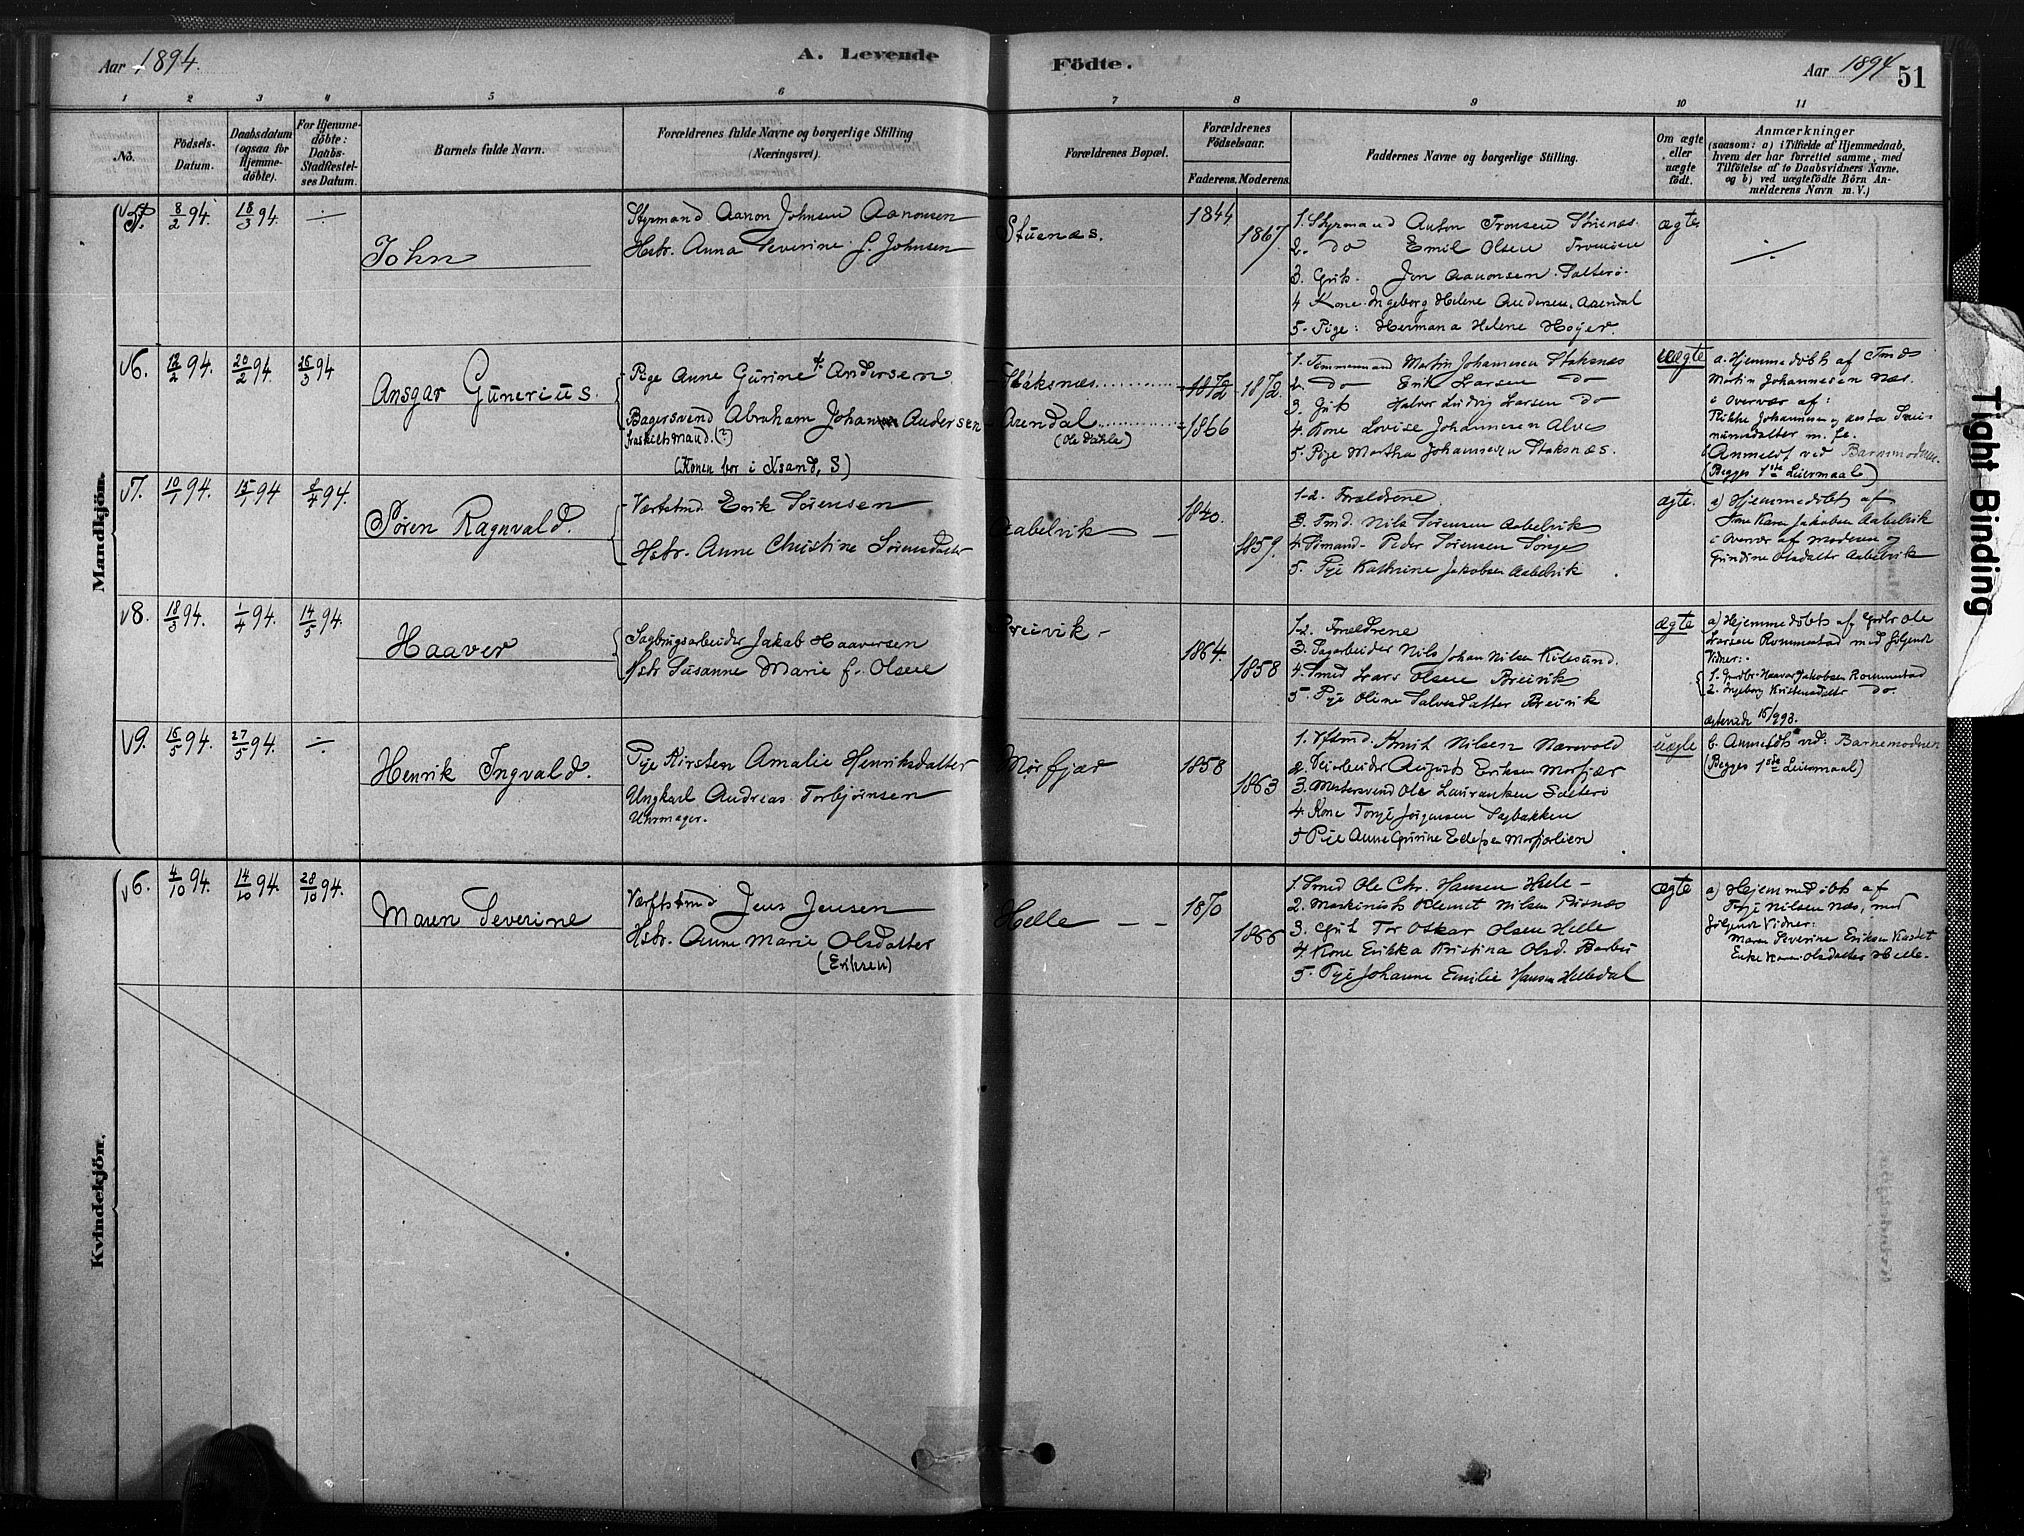 Aar 1894.
A. Levende
Födte.
Aar 1894
51
1 2 3 4 5 6 7 8 9 10 11
No.
Födsels-
Datum.
Daabsdatum
(ogsaa for
Hjemme-
döbte).
For Hjemme-
döbte:
Daabs-
Stadfæstel-
ses Datum.
Barnets fulde Navn.
Forældrenes fulde Navne og borgerlige Stilling
(Næringsvei).
Forældrenes Bopæl.
Forældrenes
Födselsaar.
Faderens. Moderens.
Faddernes Navne og borgerlige Stilling.
Om ægte
eller
uægte
født.
Anmærkninger
(saasom: a) i Tilfælde af Hjemmedaab,
hvem der har forrettet samme, med
Tilföielse af to Daabsvidners Navne,
og b) ved uægtefödte Börn An-
melderens Navn m. V.)
Mandkjön.
5. 8/2 94. 18/3 94. ÷
John
Styrmand Aanon Johnsen Aanonsen
Hstr. Anna Severine f. Johnsen
Stuenæs.
1844
1867.
1. Styrmand Anton Tronsen Stuenæs.
2. do Emil Olsen Tromöen
3. Gub. Jon Aanonsen Salterö.
4 Kone Ingeborg Helene Andersen, Arendal
5. Pige: Hermana Helene Hoyer.
ægte
÷
6. 12/2 94. 20/2 94. 26/3 94
Ansgar Gunerius.
Pige Anne Gurine Andersen
Bagersvend Abraham Johan Andersen
fraskilt mand. (?)
(Konen bor i Xsand, S)
Staksnæs
Arendal
(Ole Dahle)
1872 1872.
1866
1. Tømmermand Martin Johannesen Staksnæs
2. do Erik Larsen do
3. Gub Halvor Ludvig Larsen do
4. Kone Lovise Johannesen Alve
5. Pige Martha Johannesen Staksnæs.
uægte
a. Hjemmedöbt af Tmd
Martin Johannesen Næs.
i overvær af:
Rikke Johannesen
m. fl.
(Anmeldt ved Barnemoderen.
(Begges 1ste Leiermaal)
7. 10/1 94. 15/1 94 8/4 94.
Søren Ragnvald.
Værftstmd. Erik Sørensen
Hstr. Anne Christine Sørensdatter
Aabelvik
1840.
1859.
1-2. Forældrene
3. Tmd. Nils Sørensen Aabelvik
4. Sømand Peder Sørensen
5. Pige Kathrine Jakobsen Aabelvik
ægte.
a) Hjemmedöbt af
Jakobsen Aabelvik
i Overvær af moderen og
Gundine Olsdatter Aabelvik
8. 18/3 94. 1/4 94. 14/5 94.
Haaver
Sagbrugsarbeider Jakob Haaversen
Hstr Susanne Marie f. Olsen
Breivik
1864.
1858
1-2. Forældrene
3. Sagarbeider Nils Johan Nilsen Kilesund.
4. Smed Lars Olsen Breivik
5. Pige Oline Salvesdatter Breivik
ægte
a) Hjemmedöbt af Gdbr Ole
Larsen Rommestad med følgende
Vidner:
1. Gaardbr. Haaver Jakobsen Rommestad
2. Ingeborg Kristensdatter do
ægteviede 15/9 93.
9. 15/5 94. 27/5 94. ÷
Henrik Ingvald.
Pige Kirsten Amalie Henriksdatter
Ungkarl Andreas Torbjørnsen
Uhrmager.
Mørfjær
1858
1863
1. Vftmd. Knut Nilsen Narevold
2. Veiarbeider August Eriksen Morfjær
3. Mestersvend Ole Lauranken Salterö
4. Kone Tonje Jørgensen Sagbakken
5 Pige Anne Gurine Morfjærlien
uægte
b. Anmeldt ved: Barnemoderen
(Begges 1ste Leiermaal)
Kvindekjön.
6. 4/10 94. 14/10 94. 28/10 94.
Maren Severine
Værftstmd Jens Jensen
Hstr. Anne Marie Olsdatter
(Eriksen)
Helle
1870
1866
1. Smed Ole Chr. Hansen Helle
2. Maskinist Klemet Nilsen
3. Gut Tor Oskar Olsen Helle
4. Kone Erikka Kristina Olsd. Barbu
5. Pige Johanne Emilie Hansen Helledal
ægte
a) Hjemmedöbt af
Terje Nilsen Næs, med
følgende Vidner:
Maren Severine Eriksen Kastet
Enke Karen Olsdatter Helle.
Tight Binding